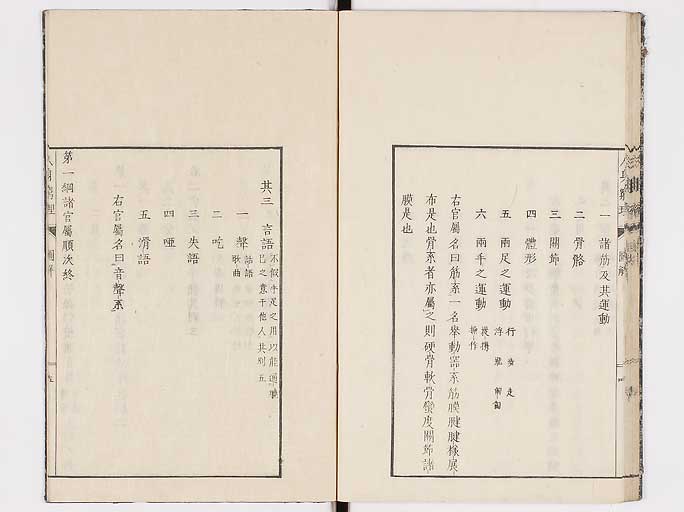 一 諸筋及其運動
二 骨骼
三 關節
四 體形
五 兩足之運動 行 步 走
浮 飛 匍匐
六 兩手之運動 攫 搏
操 作
右官屬名曰筋系一名擧動器系筋膜腱腱樣展
布是也骨系者亦屬之則硬骨軟骨蠻皮關節諸
膜是也
其三 言語 不假手足之用以能通贈
己之意于他人其別五
一 聲 話語
歌曲
二 吃
三 失語
四 啞
五 滑語
右官屬名曰音聲系
第一綱諸官屬順次終